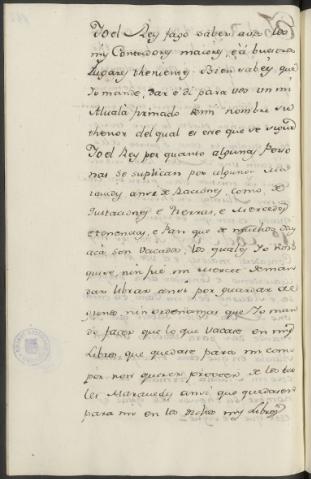 Yo el Rey fago saber a vos los
mis Contadores maiores, e a buestros
Lugares thenientes Bien sabeys que
Yo mande, dar e di para vos un mi
Alvala firmado de mi nombre su
thenor del qual es este que se sigue
Yo el Rey por quanto algunas Perso
nas se suplican por algunos Ma
ravedis ansi de Raciones, como de
Quitaciones e Tierras, e Mercedes
e tenencias, e Pan que de muchos dias
aca son vacados, los quales Yo non
quise, nin fue mi Merced de man
dar librar ansi por guardar
nin ordenamos que Yo man
de facer que lo que vacase en mis
Libros, que quedase para mi como
por non querer proveer de los ta
les Maravedis ansi que quedasen
para mi en los dichos mis Libros